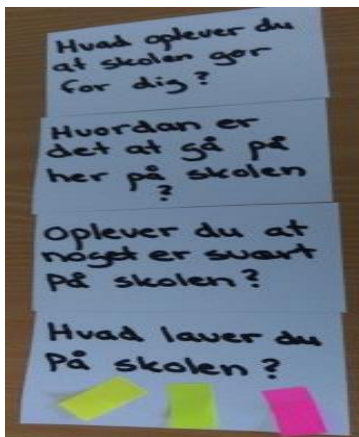 Hvad oplever du
at skolen gør
for dig?
Hvordan er
det at gå på
her på skolen
?
Oplever du at
noget er svært
på skolen?
Hvad laver du
På skolen?